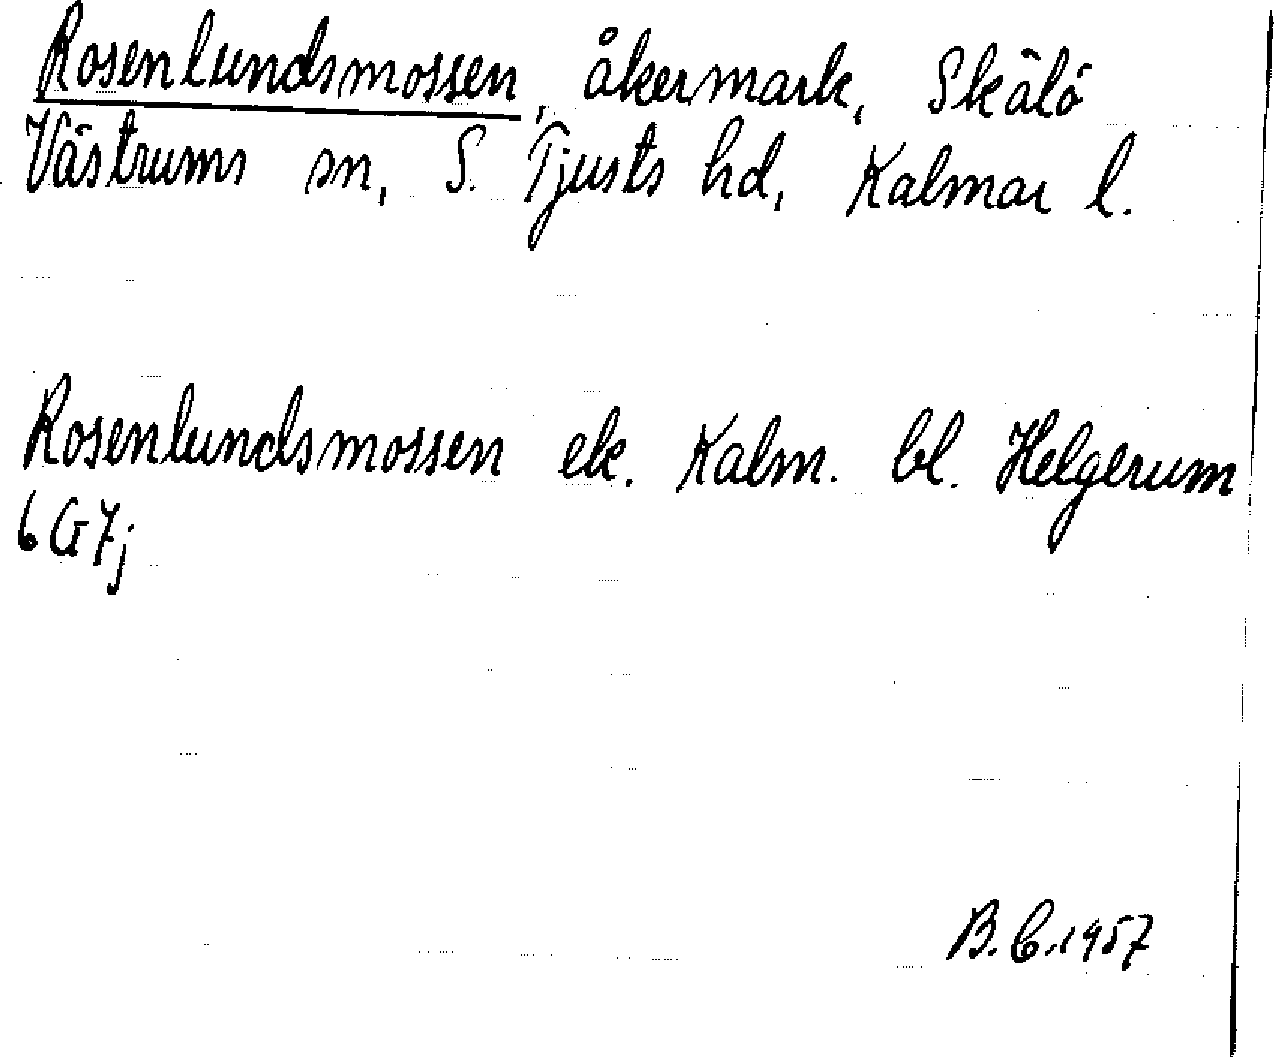 Rosenlundsmossen, åkermark, Skälö
Västrums sn, S. Tjusts hd, Kalmar l.
Rosenlundsmossen ek. Kalm. bl. Helgerum
6G7j
B.C.1957